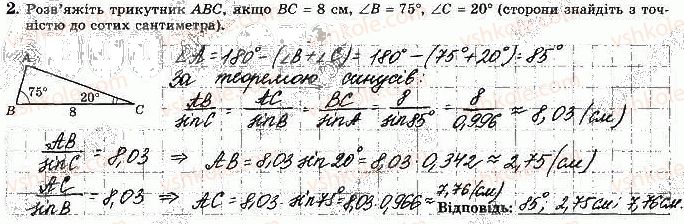 2. Розв'яжіть трикутник ABC, якщо BC = 8 см, ∠B = 75°, ∠C = 20° (сторони знайдіть з точ-
ністю до сотих сантиметра).
A
75° 20°
B 8 C
∠A = 180° – (∠B + ∠C) = 180° – (75° + 20°) = 85°
За теоремою синусів:
AB/sinC = AC/sinB = BC/sinA = 8/sin85° = 8/0,996 ≈ 8,03 (см)
AB/sinC = 8,03 ⇒ AB = 8,03 sin20° = 8,03 · 0,342 ≈ 2,75 (см)
AC/sinB = 8,03 ⇒ AC = 8,03 · sin75° = 8,03 · 0,966 ≈ 7,76 (см)
Відповідь: 85°; 2,75 см; 7,76 см.